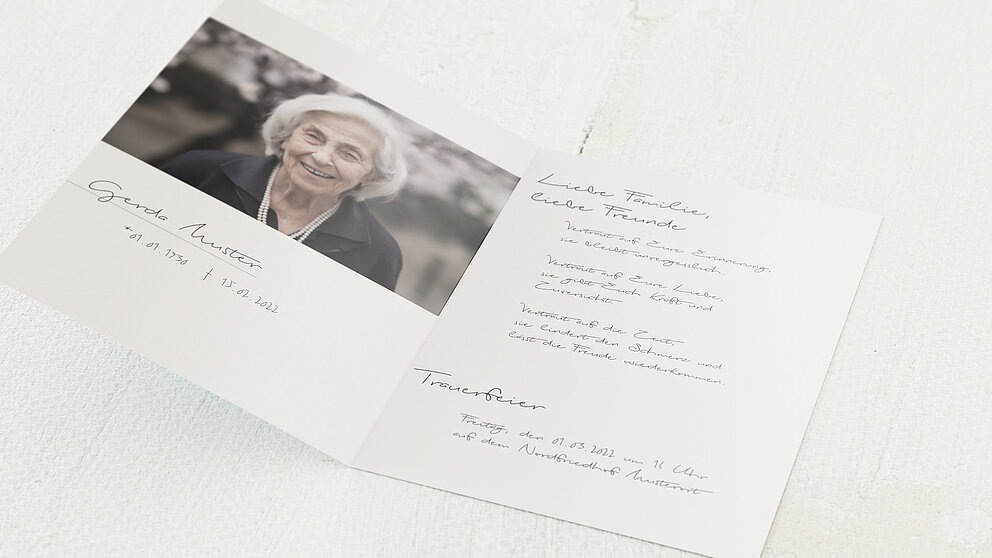 Gerda Muster
*01.01.1930 † 15.02.2022
Liebe Familie,
liebe Freunde
Vertraut auf Eure Erinnerung,
sie bleibt unvergesslich.
Vertraut auf Eure Liebe,
sie gibt Euch Kraft und
Zuversicht.
Vertraut auf die Zeit,
sie lindert den Schmerz und
lässt die Freude wiederkommen.
Trauerfeier
Freitag, den 01.03.2022 um 16 Uhr
auf dem Nordfriedhof Musterort